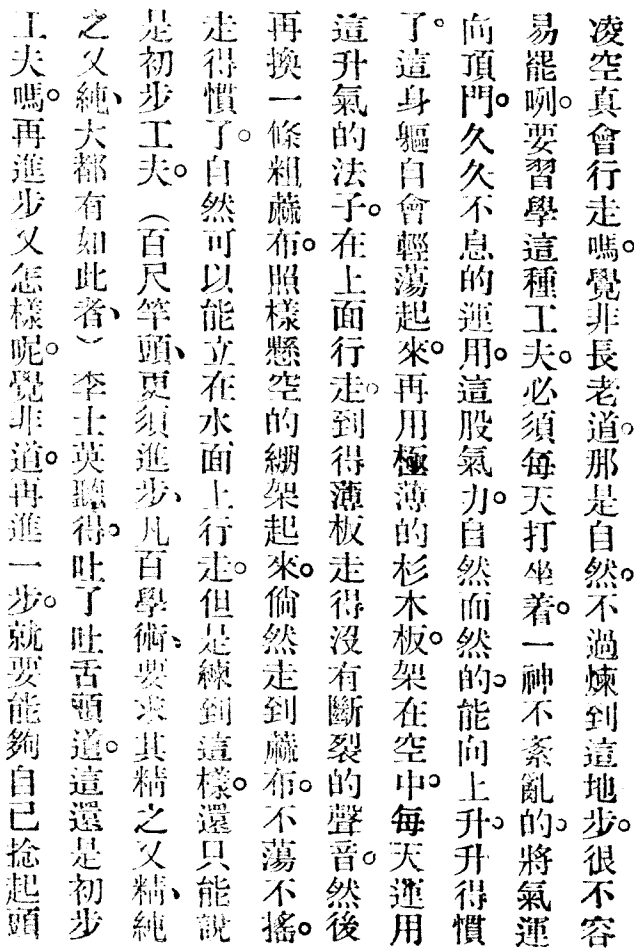 凌空真會行走嗎。覺非長老道。那是自然。不過煉到這地步。很不容
易罷咧。要習學這種工夫。必須每天打坐着。一神不紊亂的。將氣運
向頂門。久久不息的運用。這股氣力。自然而然的。能向上升。升得慣
了。這身軀自會輕蕩起來。再用極薄的杉木板。架在空中。每天運用
這升氣的法子。在上面行走。到得薄板走得沒有斷裂的聲音。然後
再換一條粗蔴布。照樣懸空的綳架起來。倘然走到蔴布。不蕩不搖。
走得慣了。自然可以能立在水面上行走。但是練到這樣。還只能說
是初步工夫。（百尺竿頭、更須進步、凡百學術、要求其精之又精、純
之又純、大都有如此者、）李士英聽得。吐了吐舌頭道。這還是初步
工夫嗎。再進步又怎樣呢。覺非道。再進一步。就要能夠自己捻起頭